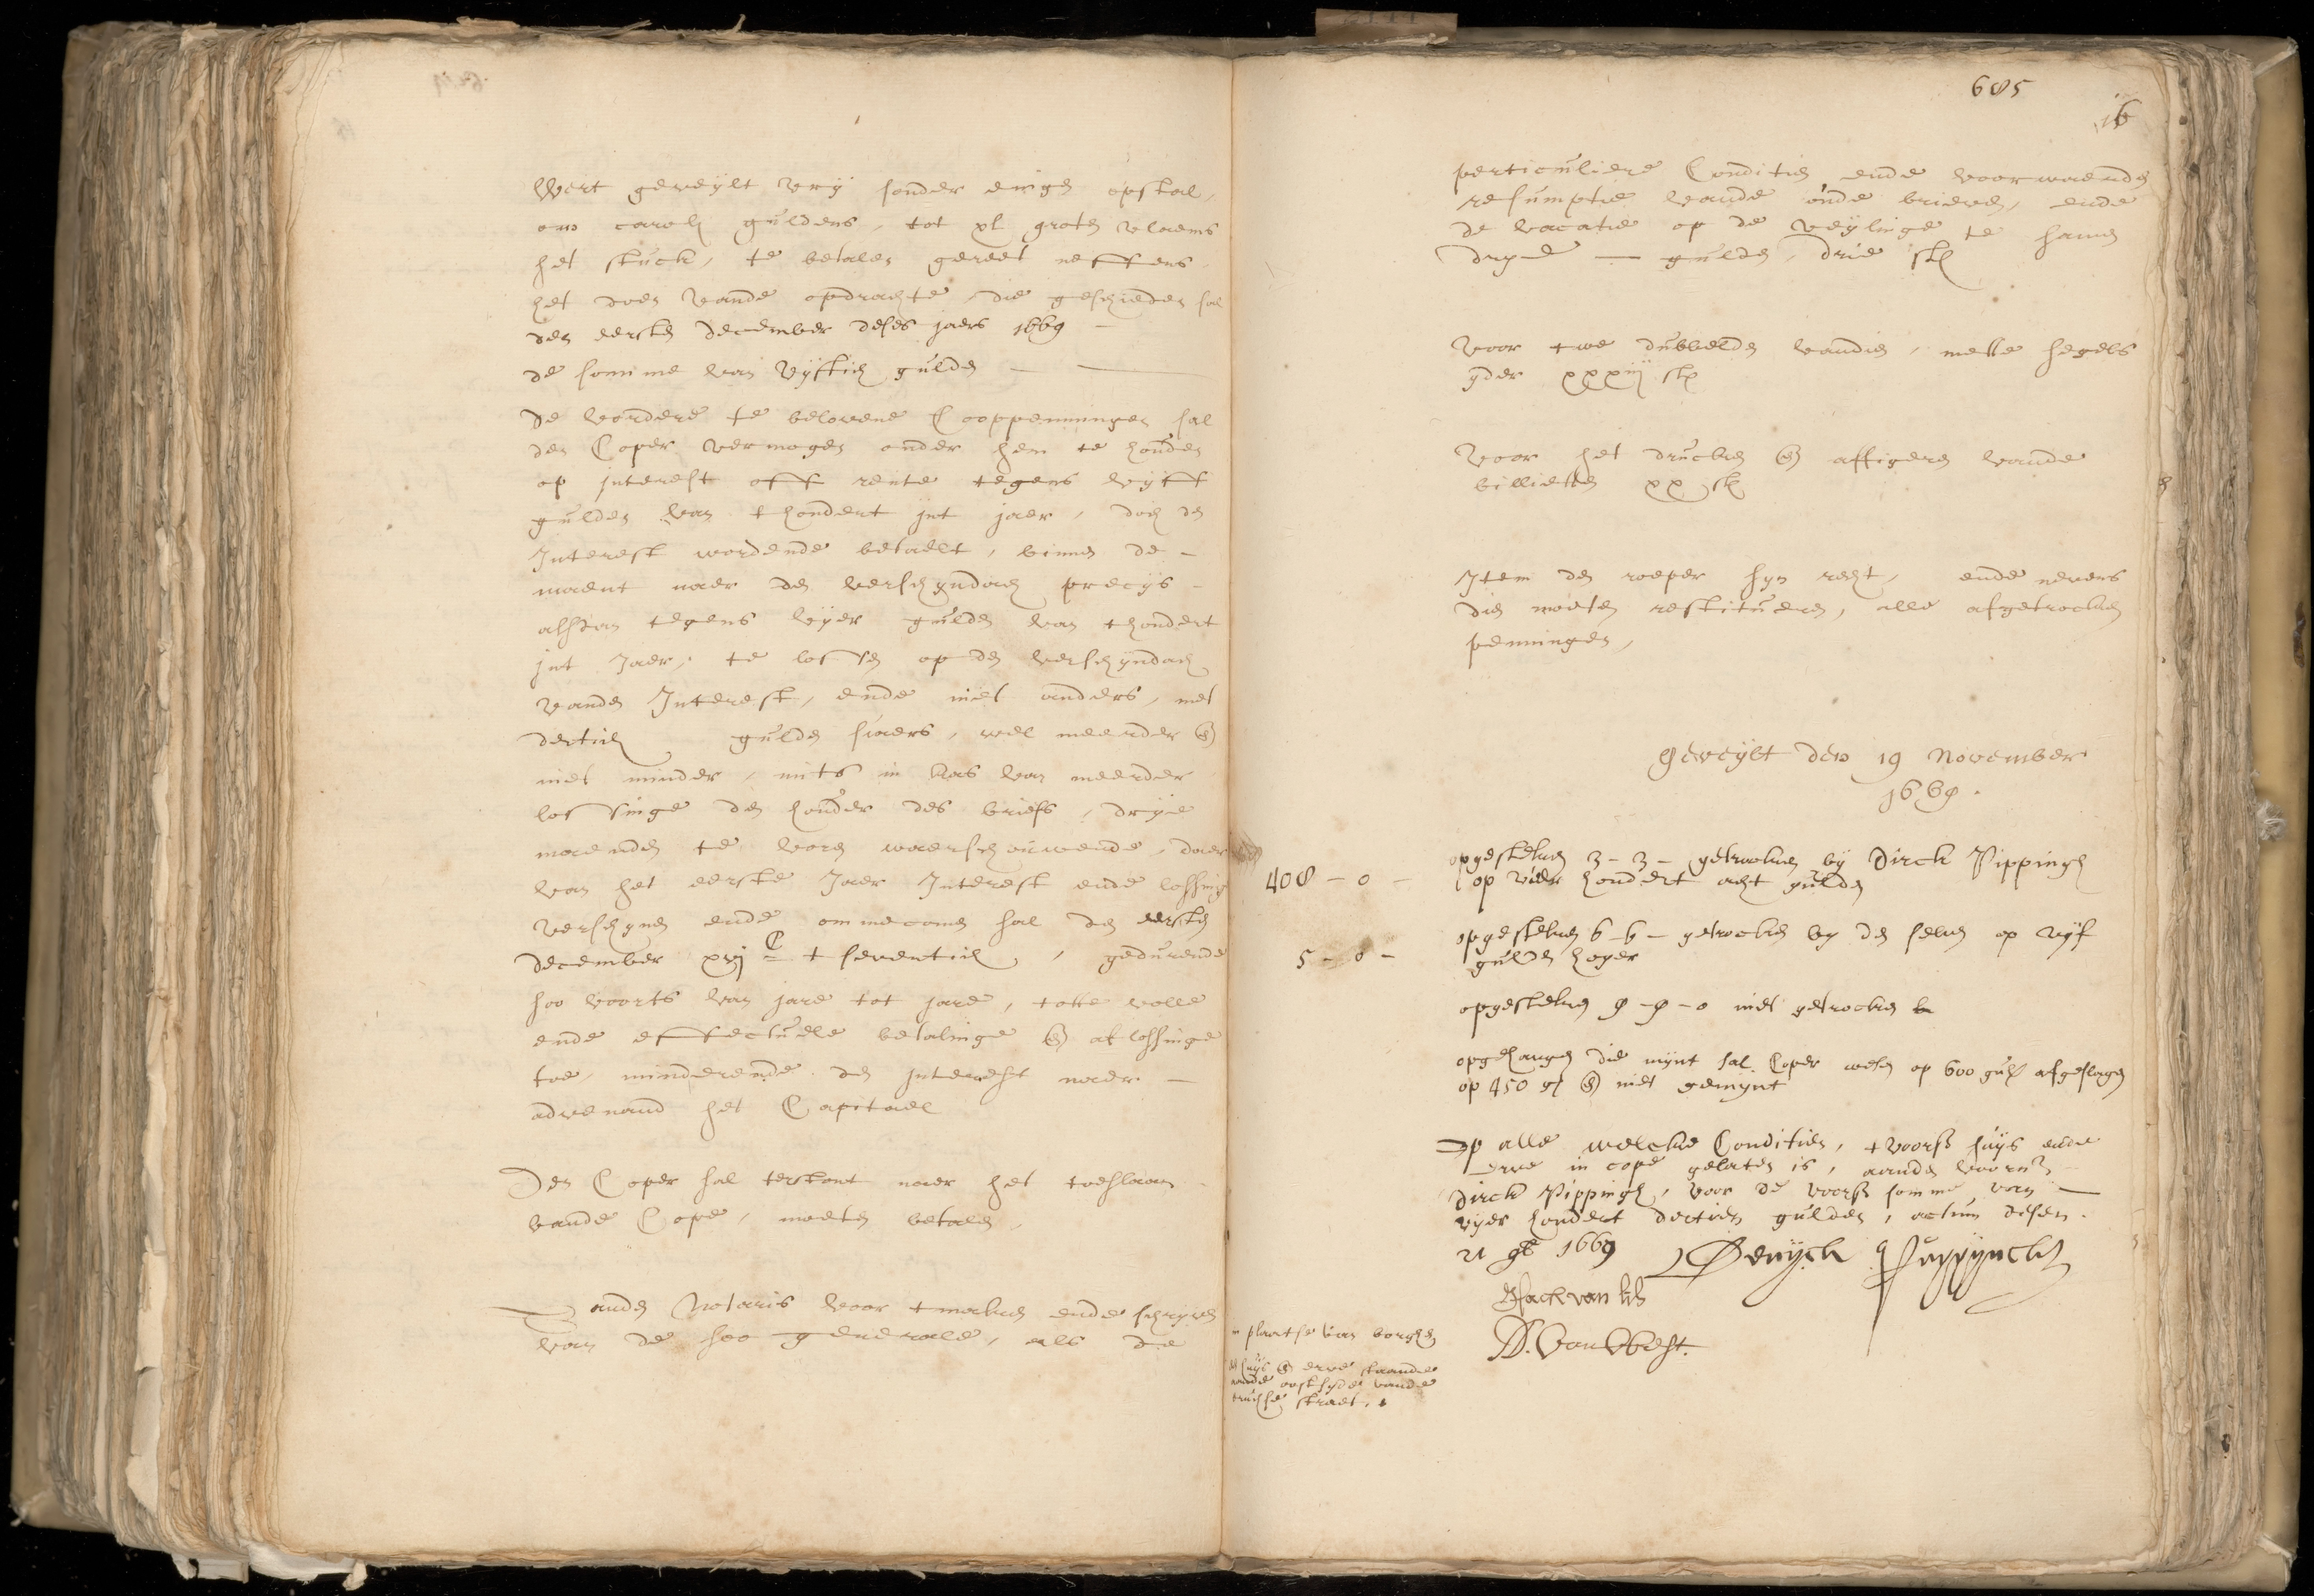 Wert geveylt vry sonder eingen opstal,
om caroli guldens, tot xl groten vlaems
het stuck, te betalen gereet neffens
het doen vande opdrachte, die geschieden sal
den eersten december deses jaers 1669 -
de somme van vyftich gulden -
De vordere te belovene Cooppenningen sal
den Coper vermogen onder hem te houden
op interest off rente tegens vyff
gulden van thondert jnt jaer, doch den
Interest wordende betaelt, binnen de -
maent naer den verschyndach precys -
alsdan tegens vyer gulden van thondert
jnt Jaer, te lossen op den verschyndach
vanden Interest, ende niet anders, met
dertich gulden siaers, wel meerder en
niet minder, mits in kas van meerder
lossinge den houder des briefs, drye
maenden te voren waerschouwende, daer
van het eerste Jaer Interest ende lossing
verschynen ende ommecomen sal den eersten
december xvj C tseventich, gedurende
soo voorts van jare tot jare, totte volle
ende effectuele betalinge en aflossinge
toe, minderende den interest naer -
advenand het Capitael
Den Coper sal terstont naer het toeslaen
vande Cope, moeten betalen,
Aanden Notaris voor tmaken ende schryven
van de soo generale, als de
685
16
perticuliere Conditien ende voorwaerden
resumptie vande oude brieven, ende
de vacatie op de veylinge te samen
drye - gulden, drie st
Voor twe dubbelden vandien, mette segels
yder xxxij st
Voor het drucken en affigeren vande
billietten xx st
Item den roeper syn recht, ende nevens
dien moeten restitueren, alle afgetrocken
penningen,
Geveylt den 19 November
1669.
408 - 0 -
opgesteken 3 - 3 - getrocken by Dirck Pippingh
op vier hondert acht gulden
5 - 0 -
opgesteken 6 - 6 - getrocken by den selven op vyf
gulden hoger
opgesteken 9 - 9 - 0 niet getrocken
opgehangen die mynt sal Coper wesen op 600 gul afgeslagen
op 450 gl en niet gemynt
Op alle welcke Conditien, tvoorss huys ende
erve in cope gelaten is, aanden voorn
Dirck Pippingh, voor de voorss somme van -
vyer hondert dertien gulden, actum desen
21 9b 1669
Deryck Puppynck
D. van
in plaetse van borgen
huys en erve staende
aande oostsyde vande
straet.